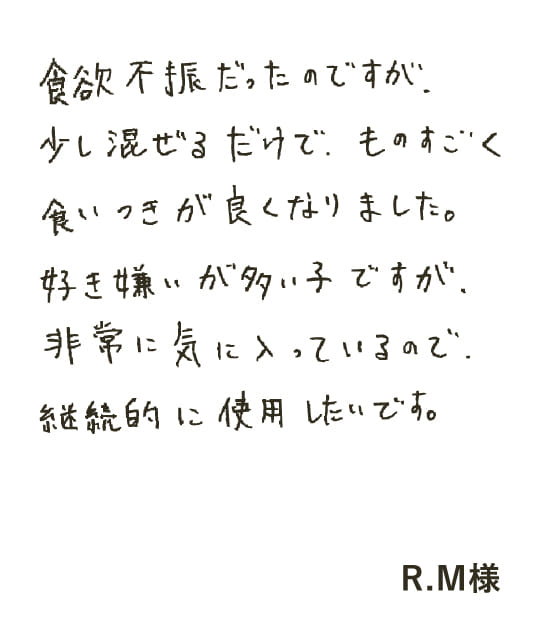 食欲不振だったのですが、
少し混ぜるだけで、ものすごく
食いつきが良くなりました。
好き嫌いが多い子ですが、
非常に気に入っているので、
継続的に使用したいです。
R.M様